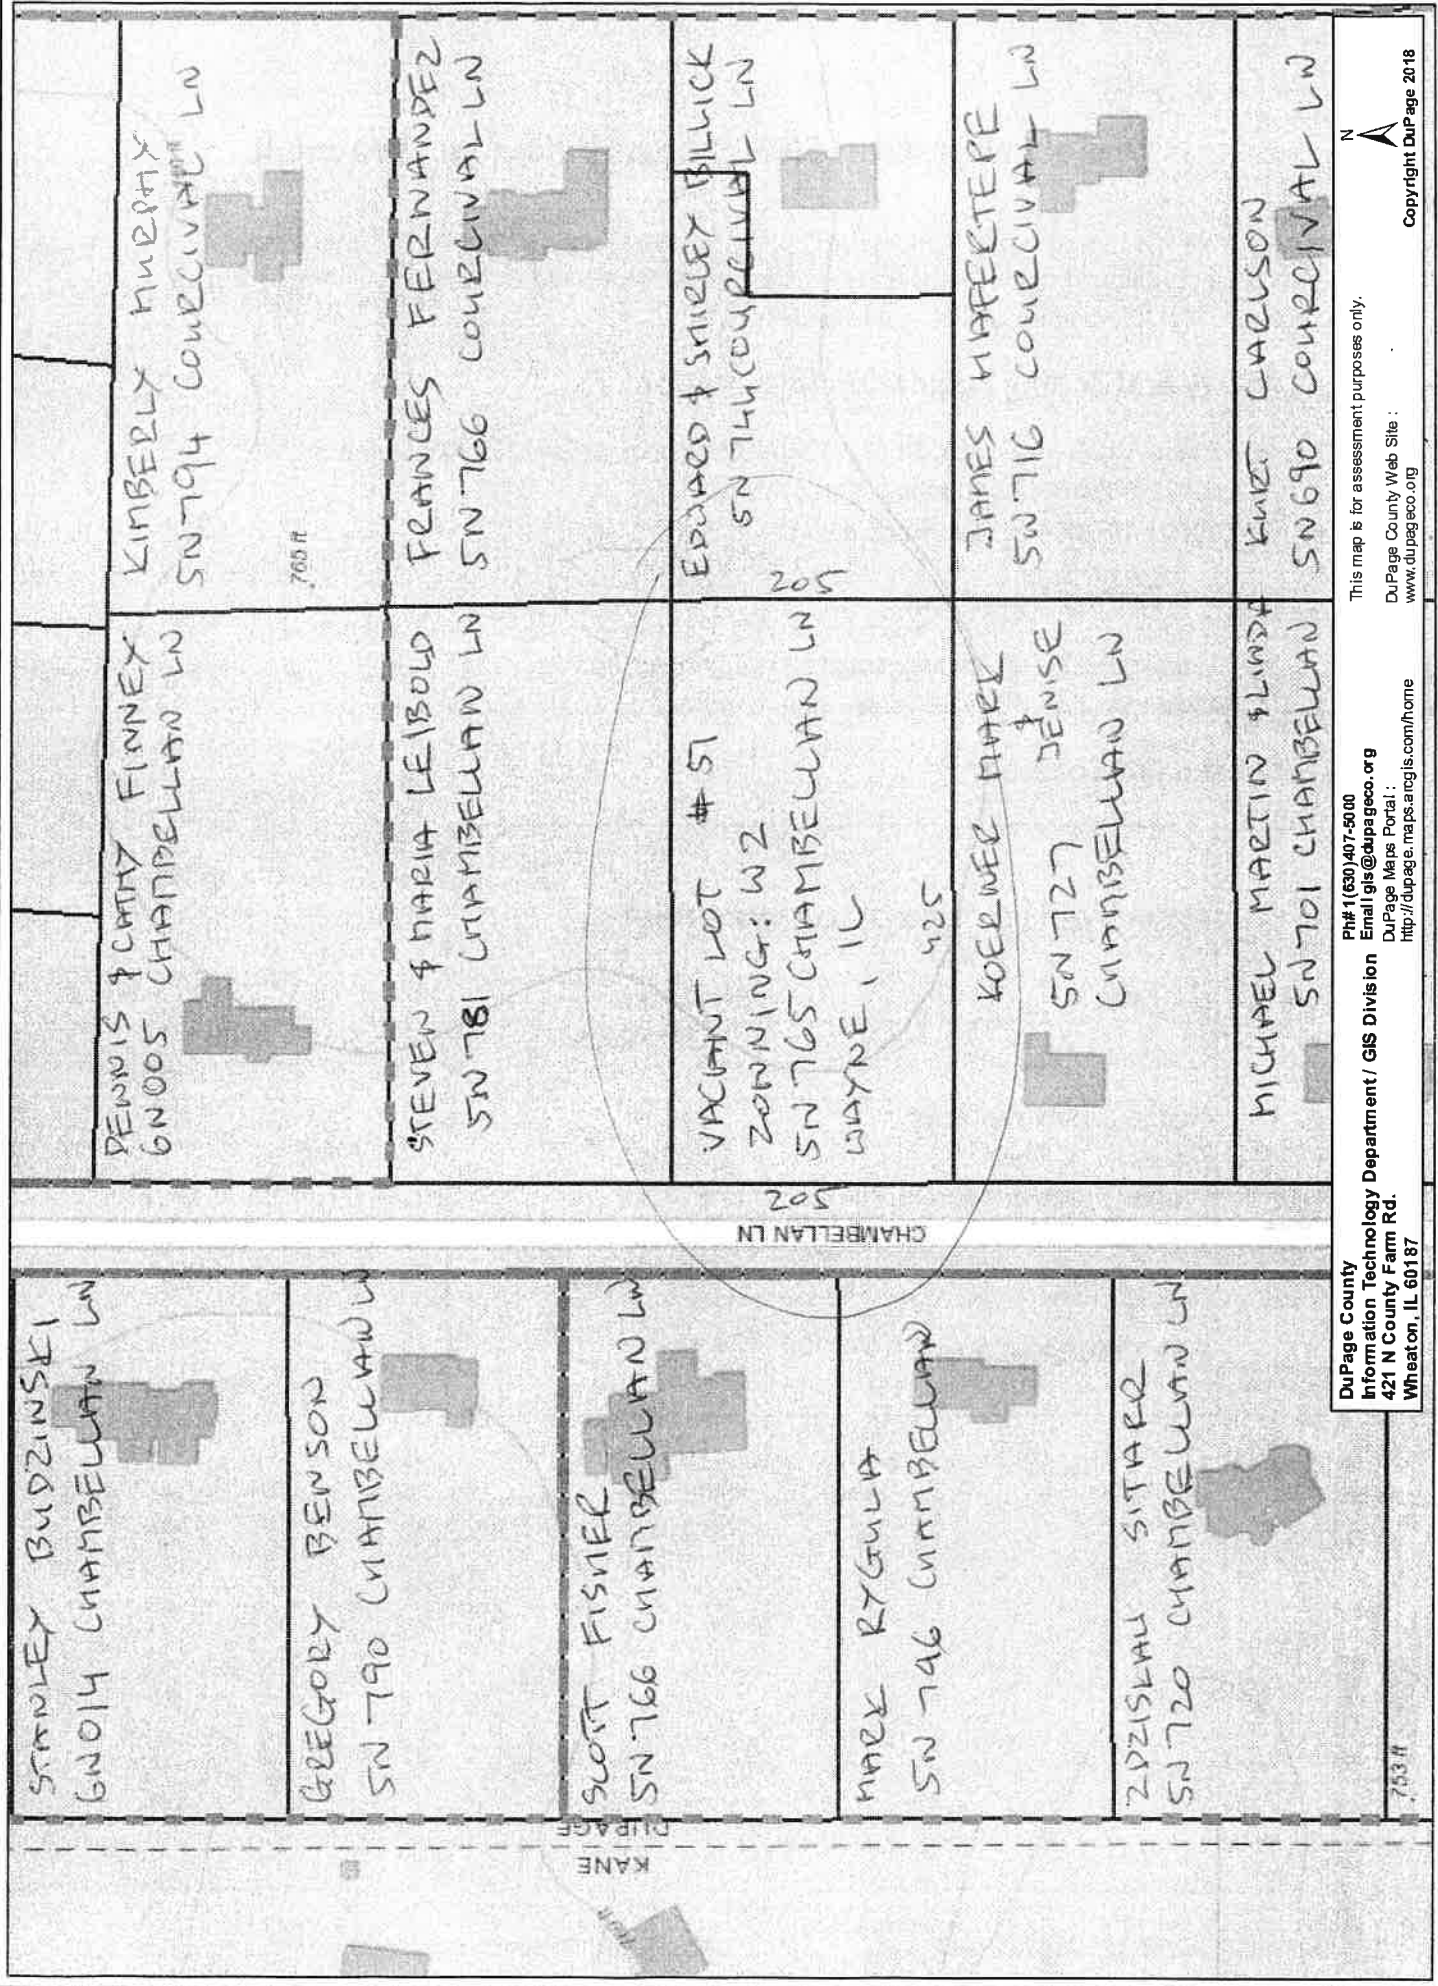 KANE
DUPAGE
STANLEY BUDZINSKI
6N014 CHAMBELLAN LN
GREGORY BENSON
5N 790 CHAMBELLAN LN
SCOTT FISHER
5N 766 CHAMBELLAN LN
MARK RYGULA
5N 746 CHAMBELLAN
ZDZISLAW SITARR
5N 720 CHAMBELLAN LN
753 ft
CHAMBELLAN LN
DENNIS & CATHY FINNEY
6N005 CHAMBELLAN LN
STEVEN & MARIA LEIBOLD
5N 781 CHAMBELLAN LN
205
VACANT LOT #51
ZONNING: W2
5N 765 CHAMBELLAN LN
WAYNE, IL
425
205
KOERNER MARK
& DENISE
5N 727
CHAMBELLAN LN
MICHAEL MARTIN & LINDA
5N 701 CHAMBELLAN
KIMBERLY MURPHY
5N 794 COURCIVAL LN
765 ft
FRANCES FERNANDEZ
5N 766 COURCIVAL LN
EDWARD & SHIRLEY BILLICK
5N 744 COURCIVAL LN
JAMES HAFERTEPE
5N 716 COURCIVAL LN
KURT CARLSON
5N 690 COURCIVAL LN
DuPage County
Information Technology Department / GIS Division
421 N County Farm Rd.
Wheaton, IL 60187
Ph# 1(630)407-5000
Email gis@dupageco.org
DuPage Maps Portal :
http://dupage.maps.arcgis.com/home
This map is for assessment purposes only.
DuPage County Web Site :
www.dupageco.org
N
Copyright DuPage 2018